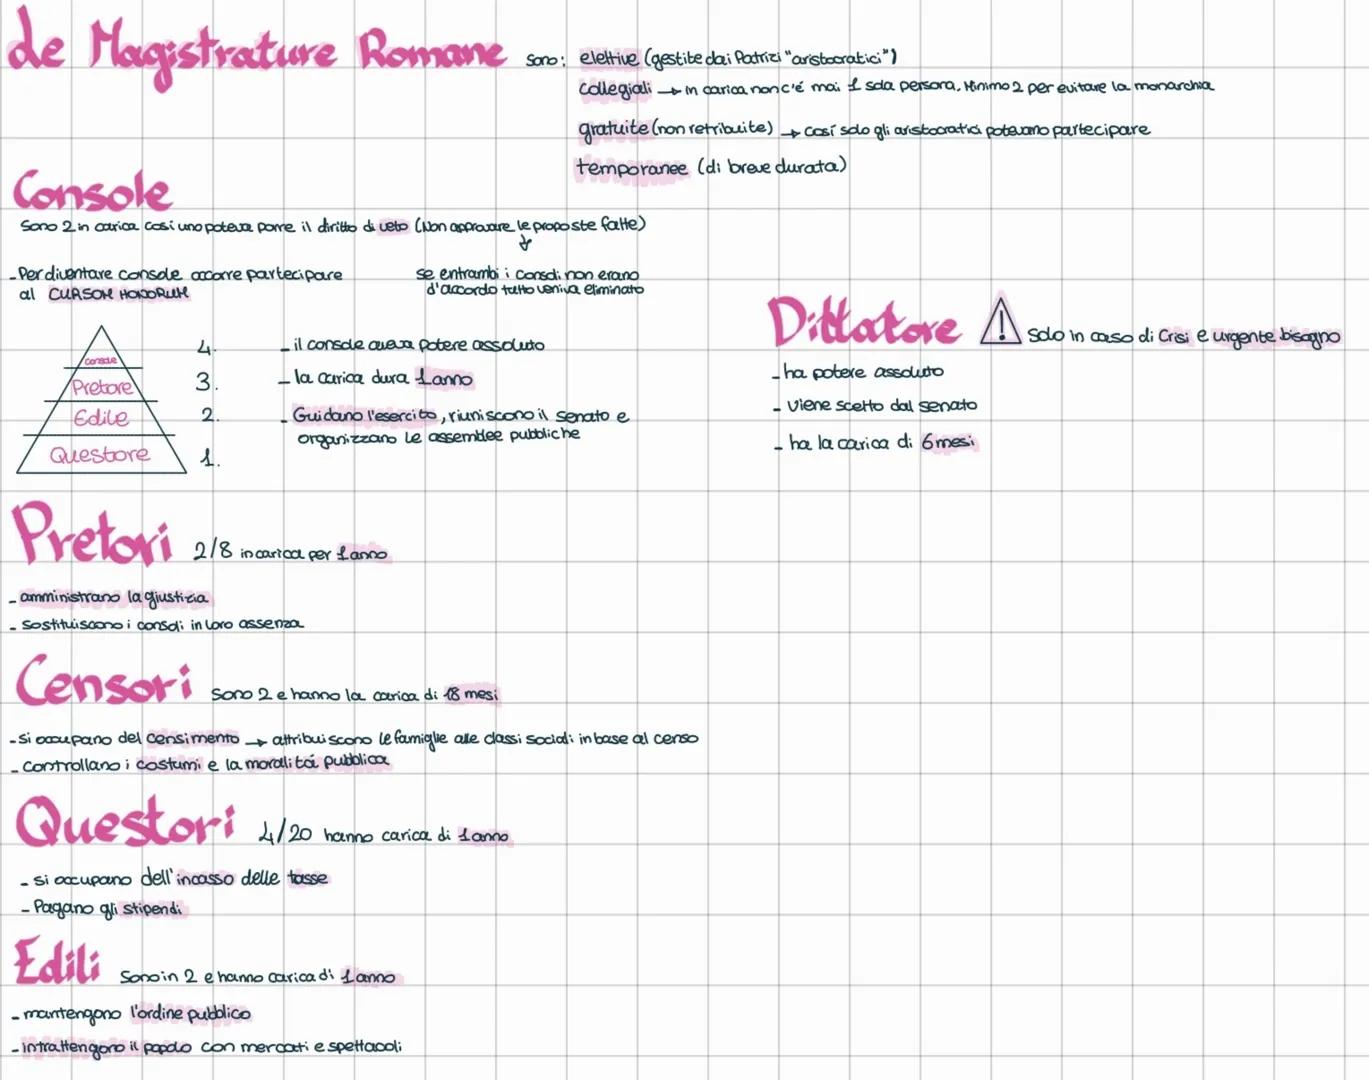 Le Magistrature Romane
sono: elettive (gestite dai Patrizi "aristocratici")
collegiali → in carica non c'é mai 1 sola persona. Minimo 2 per evitare la monarchia
gratuite (non retribuite) → cosí solo gli aristocratici potevano partecipare
temporanee (di breve durata)
Console
Sono 2 in carica cosí uno poteva porre il diritto di veto (Non approvare le proposte fatte)
se entrambi i consoli non erano
d'accordo tutto veniva eliminato
- Per diventare console occorre partecipare
al CURSOM HONORUM
console 4.
Pretore 3.
Edile 2.
Questore 1.
- il console aveva potere assoluto
- la carica dura 1 anno
- Guidano l'esercito, riuniscono il senato e
organizzano le assemblee pubbliche
Dittatore ! Solo in caso di Crisi e urgente bisogno
- ha potere assoluto
- viene scelto dal senato
- ha la carica di 6 mesi
Pretori 2/8 in carica per 1 anno
- amministrano la giustizia
- sostituiscono i consoli in loro assenza
Censori Sono 2 e hanno la carica di 18 mesi
- si occupano del censimento → attribuiscono le famiglie alle classi sociali in base al censo
- controllano i costumi e la moralitá pubblica
Questori 4/20 hanno carica di 1 anno
- si occupano dell'incasso delle tasse
- Pagano gli stipendi
Edili Sono in 2 e hanno carica di 1 anno
- mantengono l'ordine pubblico
- intrattengono il popolo con mercati e spettacoli